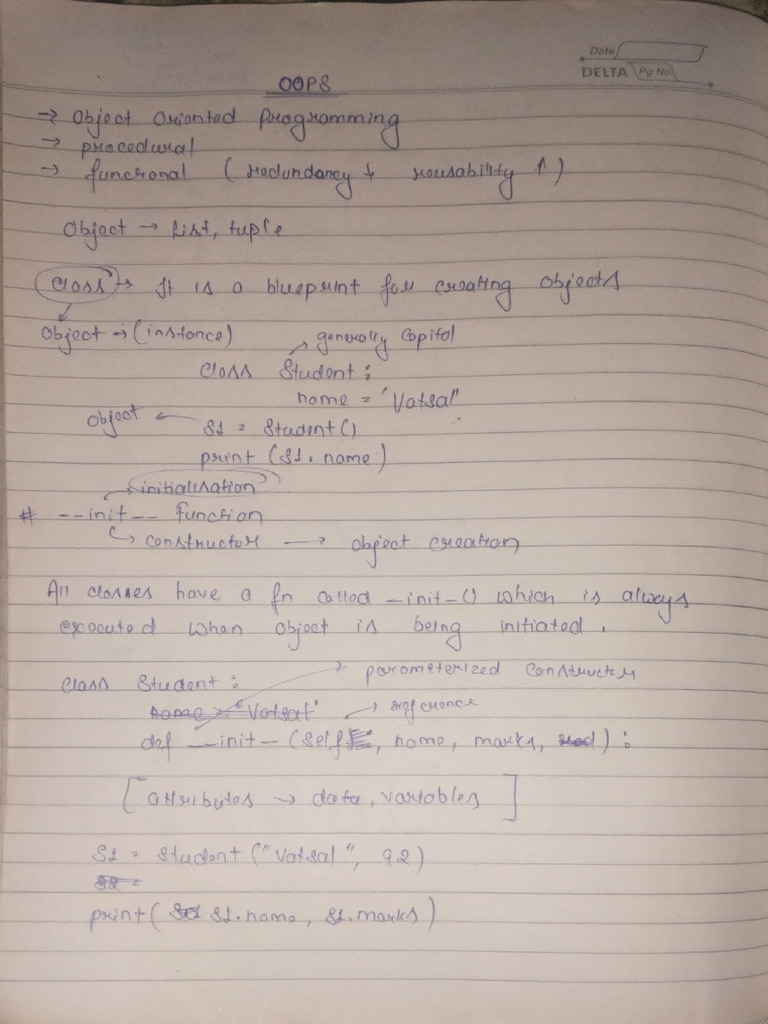 Date
DELTA Pg No
OOPS
→ Object Oriented Programming
→ procedural
→ funcional ( redundancy ↓ reusability ↑ )
Object → List, tuple
Class → It is a blueprint for creating objects
Object → (instance)
generally Capital
Class Student :
name = "Vatsal"
Object ← S1 = Student()
print (S1.name)
→ initialisation
# --init-- function
↳ constructor → object creation
All classes have a fn called _init_() which is always
executed when object is being initiated.
→ parameterized constructor
Class Student :
name = "Vatsal"
→ reference
def __init_ (self, name, marks, ) :
[ attributes → data, variables ]
S1 = Student ("Vatsal", 92)
S2 =
print ( S1.name, S1.marks)